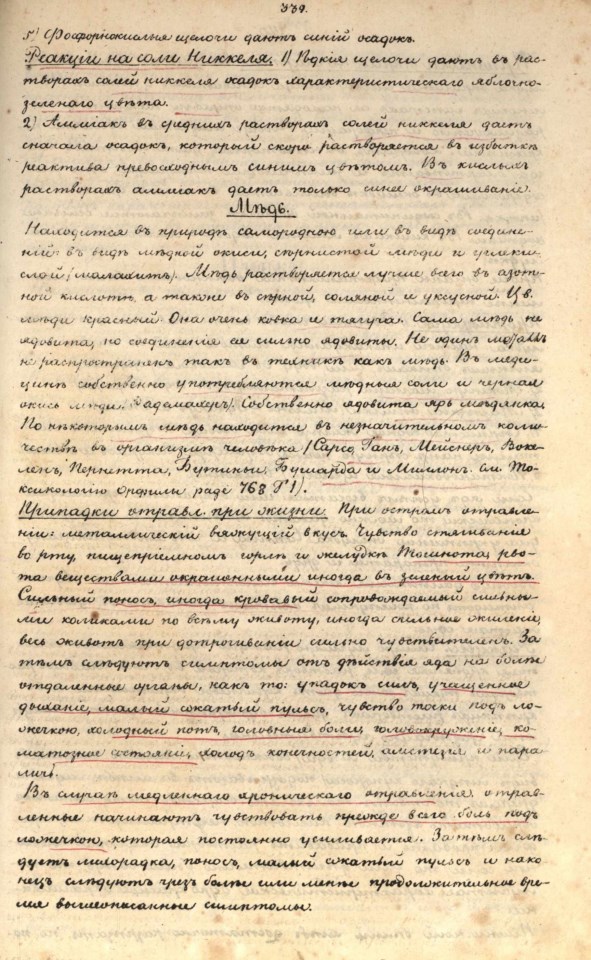 339.
5) Фосфорнокислыя щелочи даютъ синій осадокъ.
Реакціи на соли Никкеля. 1) Ѣдкія щелочи даютъ въ рас-
творахъ солей никкеля осадокъ характеристическаго яблочно-
зеленаго цвѣта.
2) Амміакъ въ среднихъ растворахъ солей никкеля даетъ
сначала осадокъ, который скоро растворяется въ избыткѣ
реактива превосходнымъ синимъ цвѣтомъ. Въ кислыхъ
растворахъ амміакъ даетъ только синее окрашиваніе.
Мѣдь.
Находится въ природѣ самородною или въ видѣ соедине-
ній: въ видѣ мѣдной окиси, сѣрнистой мѣди и углеки-
слой (малахитъ). Мѣдь растворяется лучше всего въ азот-
ной кислотѣ, а также въ сѣрной, соляной и уксусной. Цв.
мѣди красный. Она очень ковка и тягуча. Сама мѣдь не
ядовита, но соединенія ея сильно ядовиты. Не одинъ металлъ
не распространенъ такъ въ техникѣ какъ мѣдь. Въ меди-
цинѣ собственно употребляются мѣдныя соли и черная
окись мѣди (Радемахеръ). Собственно ядовита ярь мѣдянка.
По нѣкоторымъ мѣдь находится въ незначительномъ коли-
чествѣ въ организмѣ человѣка (Сарсо, Ганъ, Мейснеръ, Воке-
ленъ, Перетта, Бутиньи, Бушарда и Миллонъ. см. То-
ксикологію Орфилы 768 § 1).
Припадки отравл. при жизни. При остромъ отравле-
ніи: металлическій вяжущій вкусъ. Чувство стягиванія
во рту, пищепріемномъ горлѣ и желудкѣ. Тошнота, рво-
та веществами окрашенными иногда въ зеленый цвѣтъ.
Сильный поносъ, иногда кровавый сопровождаемый сильны-
ми коликами по всему животу, иногда сильное жиленіе,
весь животъ при дотрогиваніи сильно чувствителенъ. За
тѣмъ слѣдуютъ симптомы отъ дѣйствія яда на болѣе
отдаленные органы, какъ то: упадокъ силъ, учащенное
дыханіе, малый сжатый пульсъ, чувство тоски подъ ло-
жечкою, холодный потъ, головныя боли, головокруженіе, ко-
матозное состояніе, холодъ конечностей, анестезія и пара-
личъ.
Въ случаѣ медленнаго хроническаго отравленія отрав-
ленные начинаютъ чувствовать прежде всего боль подъ
ложечкою, которая постоянно усиливается. За тѣмъ слѣ-
дуетъ лихорадка, поносъ, малый сжатый пульсъ и нако-
нецъ слѣдуютъ чрезъ болѣе или менѣе продолжительное вре-
мя вышеописанные симптомы.